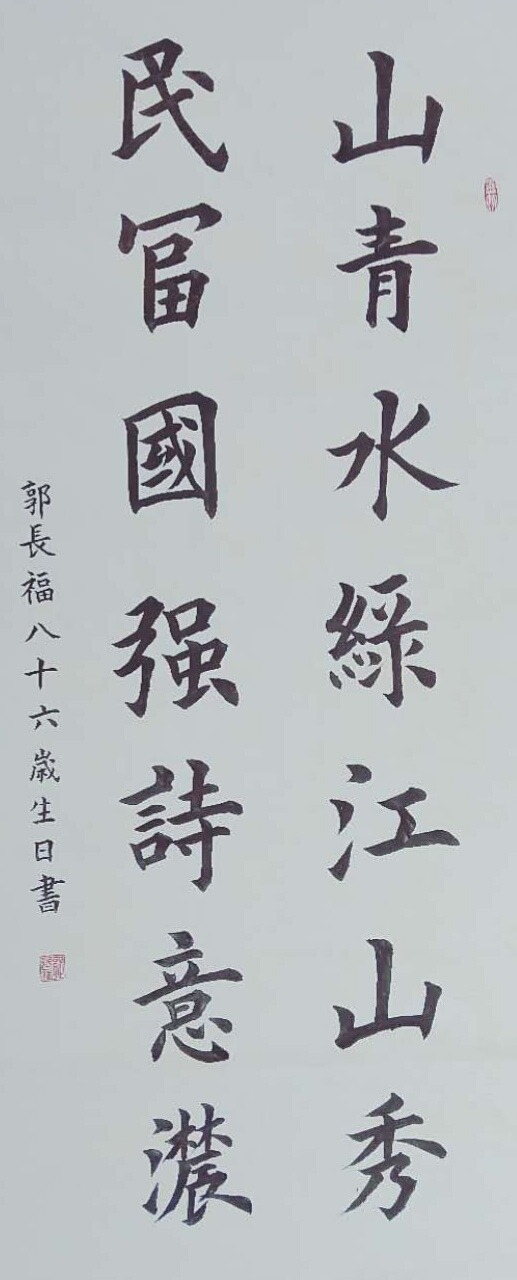 山青水綠江山秀
民冨國强詩意濃
郭長福八十六歲生日書